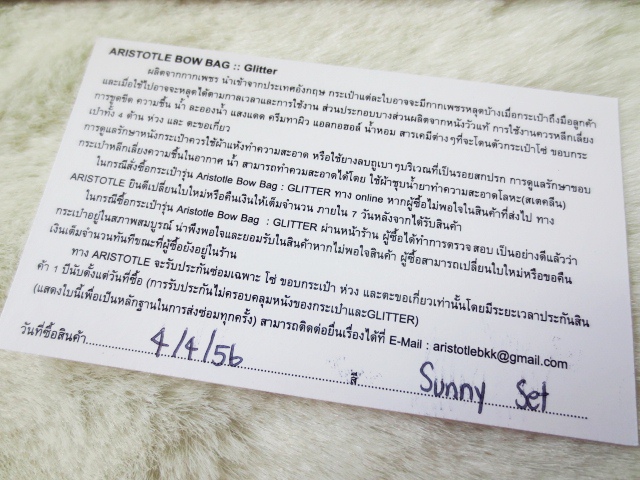 ARISTOTLE BOW BAG :: Glitter
ผลิตจากกากเพชร นำเข้าจากประเทศอังกฤษ กระเป๋าแต่ละใบอาจจะมีกากเพชรหลุดบ้างเมื่อกระเป๋าถึงมือลูกค้า
และเมื่อใช้ไปอาจจะหลุดได้ตามกาลเวลาและการใช้งาน ส่วนประกอบบางส่วนผลิตจากหนังวัวแท้ การใช้งานควรหลีกเลี่ยง
การขูดขีด ความชื้น น้ำ ละอองน้ำ แสงแดด ครีมทาผิว แอลกอฮอล์ น้ำหอม สารเคมีต่างๆที่จะโดนตัวกระเป๋าโซ่ ขอบกระ
เป๋าทั้ง 4 ด้าน ห่วง และ ตะขอเกี่ยว
การดูแลรักษาหนังกระเป๋าควรใช้ผ้าแห้งทำความสะอาด หรือใช้ยางลบถูเบาๆบริเวณที่เป็นรอยสกปรก การดูแลรักษาขอบ
กระเป๋าหลีกเลี่ยงความชื้นในอากาศ น้ำ สามารถทำความสะอาดได้โดย ใช้ผ้าชุบน้ำยาทำความสะอาดโลหะ(สเตคลีน)
ในกรณีสั่งซื้อกระเป๋ารุ่น Aristotle Bow Bag : GLITTER ทาง online หากผู้ซื้อไม่พอใจในสินค้าที่ส่งไป ทาง
ARISTOTLE ยินดีเปลี่ยนใบใหม่หรือคืนเงินให้เต็มจำนวน ภายใน 7 วันหลังจากได้รับสินค้า
ในกรณีซื้อกระเป๋ารุ่น Aristotle Bow Bag : GLITTER ผ่านหน้าร้าน ผู้ซื้อได้ทำการตรวจ สอบ เป็นอย่างดีแล้วว่า
กระเป๋าอยู่ในสภาพสมบูรณ์ น่าพึงพอใจและยอมรับในสินค้าหากไม่พอใจสินค้า ผู้ซื้อสามารถเปลี่ยนใบใหม่หรือขอคืน
เงินเต็มจำนวนทันทีขณะที่ผู้ซื้อยังอยู่ในร้าน
ทาง ARISTOTLE จะรับประกันซ่อมเฉพาะ โซ่ ขอบกระเป๋า ห่วง และตะขอเกี่ยวเท่านั้นโดยมีระยะเวลาประกันสิน
ค้า 1 ปีนับตั้งแต่วันที่ซื้อ (การรับประกันไม่ครอบคลุมหนังของกระเป๋าและGLITTER)
(แสดงใบนี้เพื่อเป็นหลักฐานในการส่งซ่อมทุกครั้ง) สามารถติดต่อยื่นเรื่องได้ที่ E-Mail : aristotlebkk@gmail.com
วันที่ซื้อสินค้า 4/4/56 สี Sunny Set